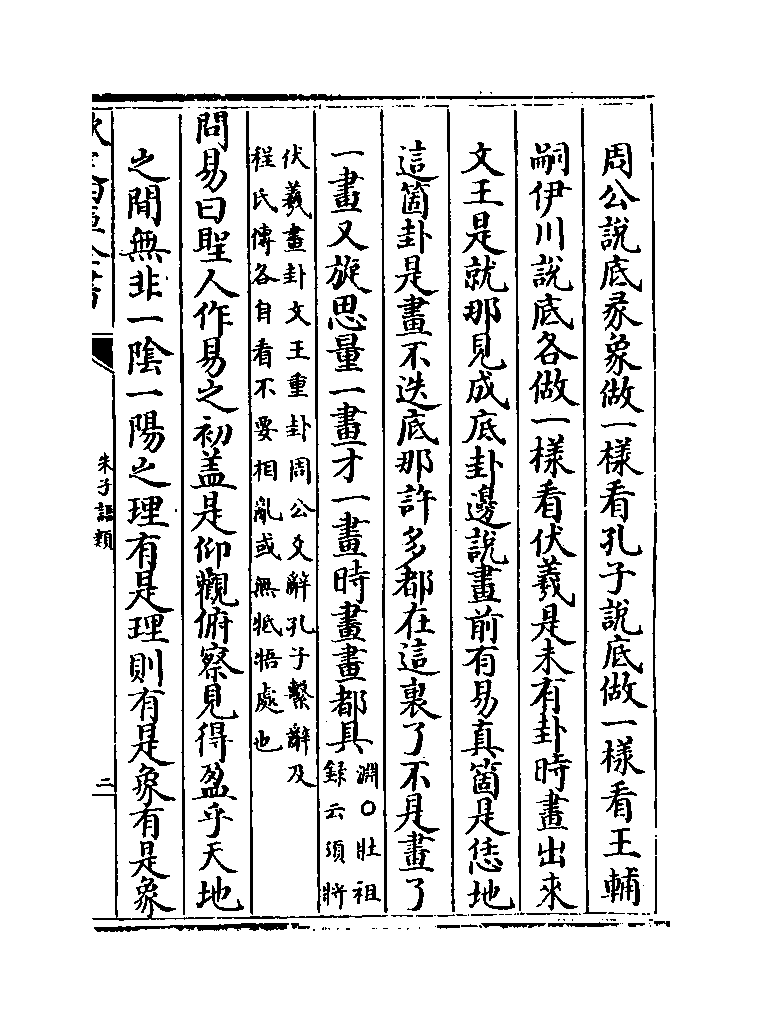 周公說底彖象做一樣看孔子說底做一樣看王輔
嗣伊川說底各做一樣看伏羲是未有卦時畫出來
文王是就那見成底卦邊說畫前有易真箇是恁地
這箇卦是畫不迭底那許多都在這裏了不是畫了
一畫又旋思量一畫才一畫時畫畫都具淵○壯祖
録云須將
伏羲畫卦文王重卦周公爻辭孔子繫辭及
程氏傳各自看不要相亂或無牴牾處也
問易曰聖人作易之初盖是仰觀俯察見得盈乎天地
之間無非一隂一陽之理有是理則有是象有是象
朱子語類
二